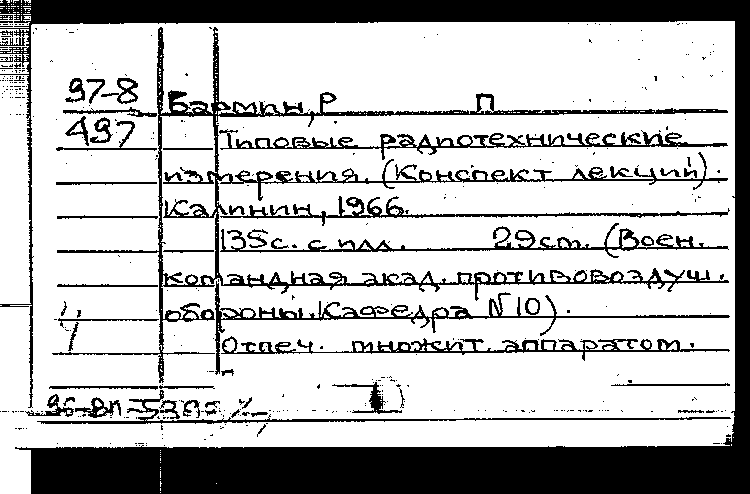 97-8
497
Бармин, Р П
Типовые радиотехнические
измерения. (Конспект лекций).
Калинин, 1966.
135с. с илл. 29см. (Воен.
командная акад. противовоздуш.
обороны. Кафедра №10).
Отпеч. множит. аппаратом.